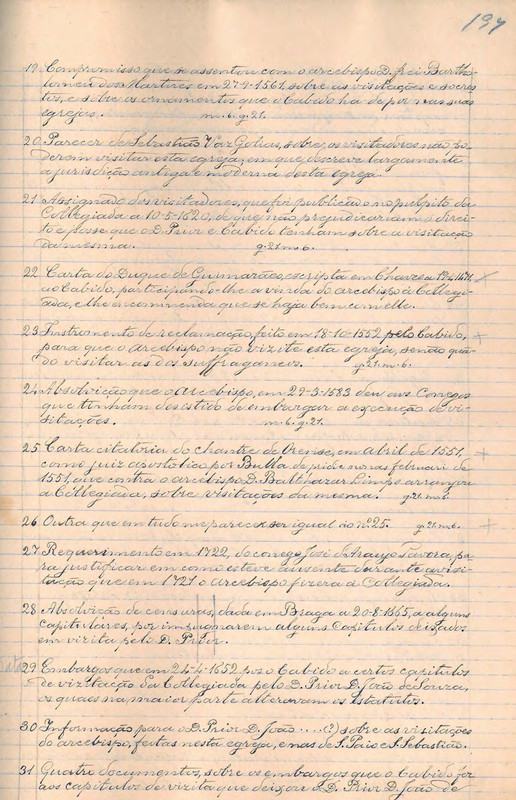 197
19 Compromisso que se assentou com o arcebispo D. frei Bartho-
lomeu dos Martires em 27-9-1561, sobre as visitações e socres-
tos, e sobre os ornamentos que o Cabido ha de por nas suas
egrejas. m. 6. g. 21.
20 Parecer de Sebastião Vaz Golias, sobre os visitadores não po-
derem visitar esta egreja, em que descreve largamente
a jurisdição antiga e moderna desta egreja
21 Assignado dos visitadores, que foi publicado no pulpito da
Collegiada a 10-5-1620, de que não prejudicariam o direi-
to e posse que o D. Prior e Cabido tenham sobre a visitação
da mesma. g. 21. m. 6.
22 Carta do Duque de Guimarães, escripta em Chaves a
ao Cabido, participando-lhe a vinda do arcebispo á Collegi-
ada, e lhe encommenda que se haja bem com elle.
23 Instromento de reclamação, feito em 18-10-1552 pelo Cabido,
para que o Arcebispo não vizite esta egreja, senão quan-
do visitar as dos suffraganeos. g. 21. m. 6.
24 Absolvição que o Arcebispo, em 29-3-1583 deu aos Conegos
que tinham desistido de embargar a execução de vi-
sitações. m. 6. g. 21.
25 Carta citatoria do chantre de Orense, em abril de 1551,
como juiz apostolico por Bulla de pridie nonas februarii de
1551, que contra o arcebispo D. Balthazar Limpo arranjou
a Collegiada, sobre visitações da mesma. g. 21. m. 6.
26 Outra que em tudo me parece ser igual ao nº 25. g. 21. m. 6.
27 Requerimento em 1722, do conego José de Araujo Tavora, pa-
ra justificar em como esteve ausente durante a visi-
tação que em 1721 o arcebispo fizera á Collegiada.
28 Absolvição de censuras, dada em Braga a 20-8-1665, a alguns
capitulares, por impugnarem alguns Capitulos deixados
em vizita pelo D. Prior.
29 Embargos que em 24-4-1652 pos o Cabido a certos capitulos
de vizitação da Collegiada pelo D. Prior D. João de Souza,
os quaes na maior parte alteravam os Estatutos.
30 Informação para o D. Prior D. João ....(?) sobre as visitações
do arcebispo, feitas nesta egreja, e nas de S. Paio e S. Sebastião.
31 Quatro documentos, sobre os embargos que o Cabido fez
aos capitulos de vizita que deixou o D. Prior D. João de